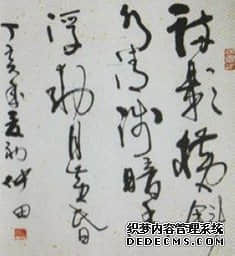 疏影横斜
水清浅暗香
浮动月黄昏
丁亥
织梦内容管理系统
DEDECMS.COM